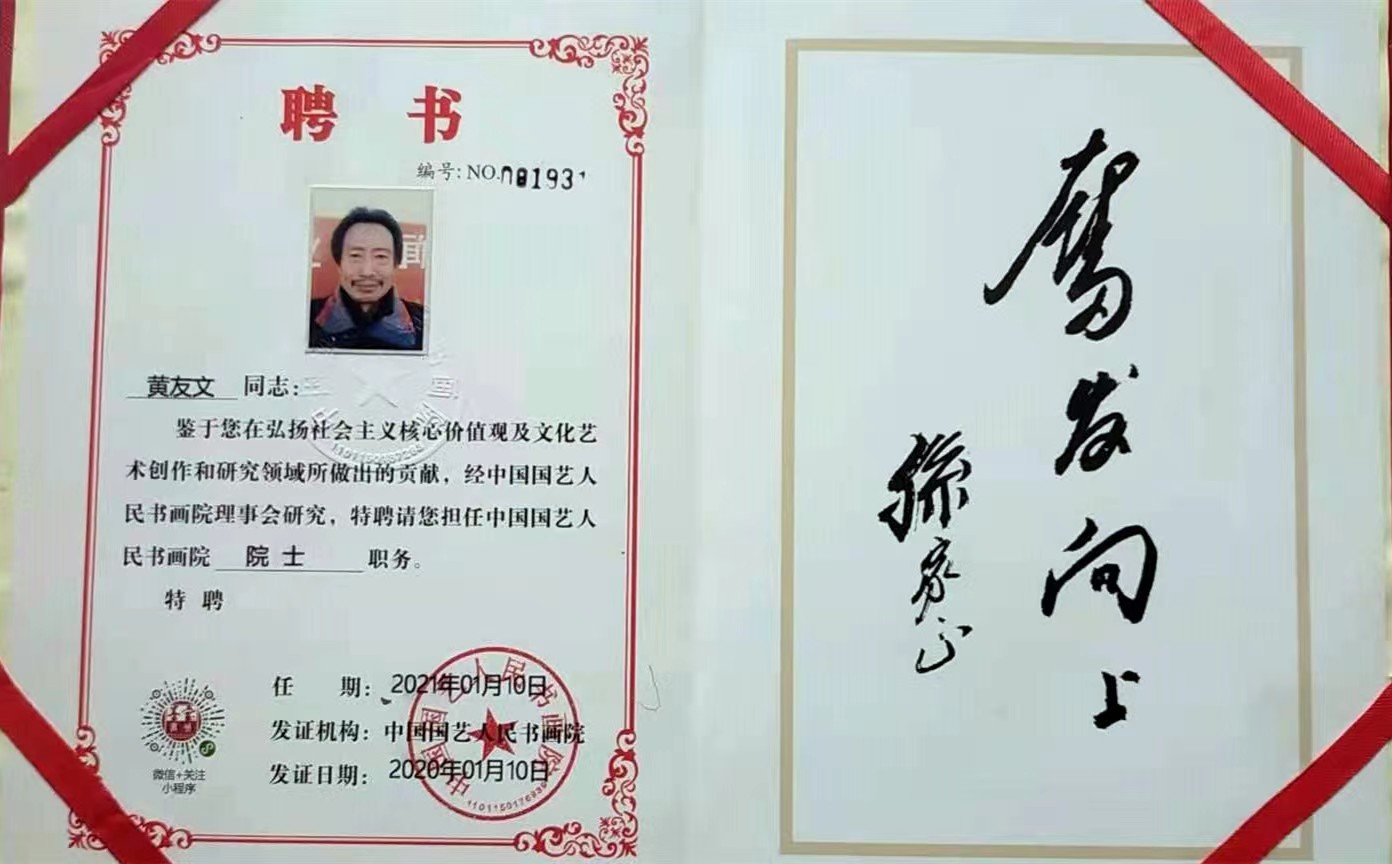 聘 书
编号: NO.
黄友文 同志:
鉴于您在弘扬社会主义核心价值观及文化艺
术创作和研究领域所做出的贡献，经中国国艺人
民书画院理事会研究，特聘请您担任中国国艺人
民书画院 院 士 职务。
特 聘
任 期: 2021年01月10日
发证机构: 中国国艺人民书画院
发证日期: 2020年01月10日
微信+关注
小程序
中国国艺人民书画院
奋发向上
孙家正